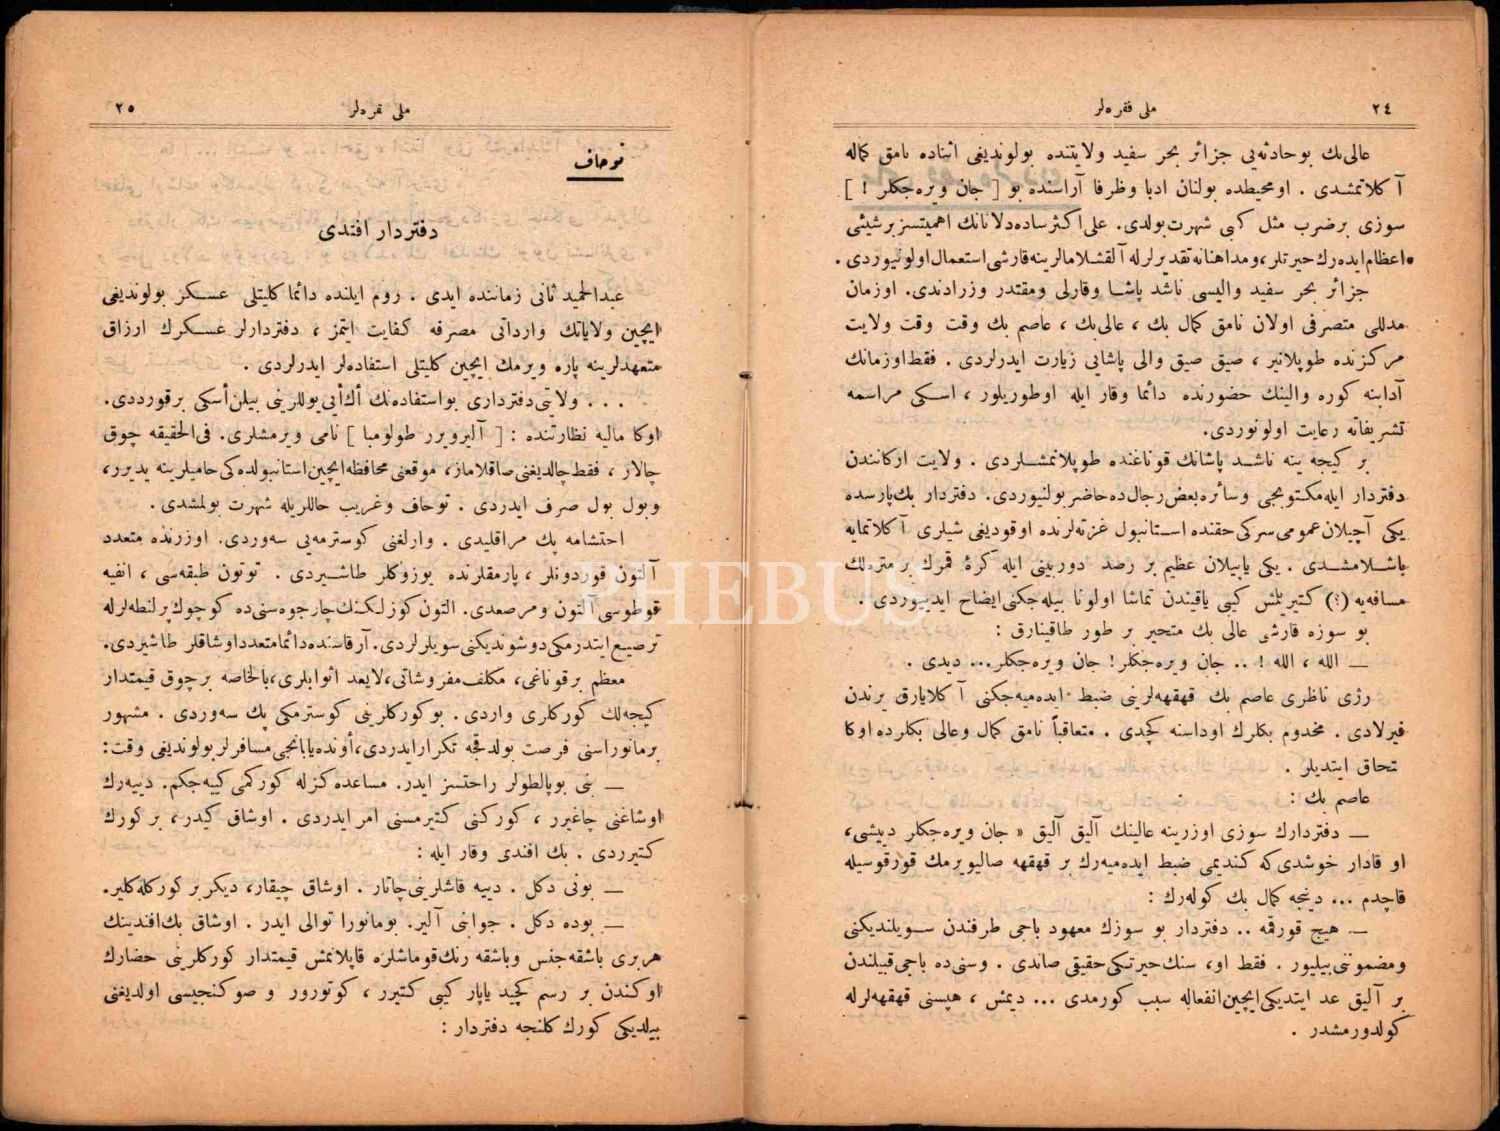 ٢٤
ملی فقره‌لر
عالی‌بك بوحادثه‌یی جزائر بحر سفید ولایتنده بولوندیغی اثناده نامق كماله
آكلاتمشدی . اومحیطده بولنان ادبا وظرفا آراسنده بو [ جان ویره‌جكلر ! ]
سوزی برضرب مثل كبی شهرت بولدی. علی‌اكثر ساده‌دلانك اهمیتسز برشیئی
اعظام ایده‌رك حیرتلر، ومداهنانه تقدیرلرله آلقشلامالرینه قارشی استعمال اولونیوردی .
جزائر بحر سفید والیسی ناشد پاشا وقارلی ومقتدر وزرادندی. اوزمان
مدللی متصرفی اولان نامق كمال بك ، عالی‌بك ، عاصم بك وقت وقت ولایت
مركزنده طوپلانیر ، صیق صیق والی پاشایی زیارت ایدرلردی . فقط اوزمانك
آدابنه كوره والینك حضورنده دائما وقار ایله اوطوریلور ، اسكی مراسمه
تشریفاته رعایت اولونوردی.
بر كیجه ینه ناشد پاشانك قوناغنده طوپلانمشلردی . ولایت اركانندن
دفتردار ایله مكتوبجی وسائره بعض رجال‌ده حاضر بولنیوردی. دفتردار بك پارسده
یكی آچیلان عمومی سركی حقنده استانبول غزته‌لرنده اوقودیغی شیلری آكلاتمایه
باشلامشدی . یكی یاپیلان عظیم بر رصد دوربینی ایله كرهٔ قمرك بر متره‌لك
مسافه‌یه (؟) كتیریلمش كبی یاقیندن تماشا اولونا بیله‌جكنی ایضاح ایدییوردی .
بو سوزه قارشی عالی بك متحیر بر طور طاقینارق :
— الله ، الله ! .. جان ویره‌جكلر! جان ویره‌جكلر... دیدی .
رژی ناظری عاصم بك قهقهه‌لرینی ضبط ایده‌میه‌جكنی آكلایارق یرندن
فیرلادی . مخدوم بكلرك اوداسنه كچدی . متعاقباً نامق كمال وعالی بكلرده اوكا
تحاق ایتدیلر .
عاصم بك :
— دفتردارك سوزی اوزرینه عالینك آلیق آلیق « جان ویره‌جكلر دییشی،
او قادار خوشدی‌كه كندیمی ضبط ایده‌میه‌رك بر قهقهه صالیویرمك قورقوسیله
قاچدم ... دینجه كمال بك كوله‌رك :
— هیچ قورقمه .. دفتردار بو سوزك معهود باجی طرفندن سویلندیكنی
ومضموننی بیلیور . فقط او، سنك حیرتكی حقیقی صاندی . وسنی‌ده باجی قبیلندن
بر آلیق عد ایتدیكی ایچین انفعاله سبب كورمدی ... دیمش ، هپسنی قهقهه‌لرله
كولدورمشدر .
٢٥
ملی فقره‌لر
توحاف
دفتردار افندی
عبدالحمید ثانی زماننده ایدی . روم ایلنده دائما كلیتلی عسكر بولوندیغی
ایچین ولایاتك وارداتی مصرفه كفایت ایتمز ، دفتردارلر عسكرك ارزاق
متعهدلرینه پاره ویرمك ایچین كلیتلی استفاده‌لر ایدرلردی .
. . . ولایتی دفترداری بواستفاده‌نك أك أیی یوللرینی بیلن أسكی برقورددی.
اوكا مالیه نظارتنده : [ آلیرویرر طولومبا ] نامی ویرمشلری. فی‌الحقیقه چوق
چالار ، فقط چالدیغنی صاقلاماز، موقعنی محافظه ایچین استانبولده‌كی حامیلرینه یدیرر،
وبول بول صرف ایدردی . توحاف وغریب حاللریله شهرت بولمشدی .
احتشامه پك مراقلیدی . وارلغنی كوسترمه‌یی سه‌وردی. اوزرنده متعدد
آلتون قوردونلر ، پارمقلرنده یوزوكلر طاشیردی . توتون طبقه‌سی ، انفیه
قوطوسی آلتون ومرصعدی. التون كوزلكنك چارجوه‌سنی‌ده كوچوك پرلنطه‌لرله
ترصیع ایتدرمكی دوشوندیكنی سویلرلردی. آرقاسنده دائما متعدد اوشاقلر طاشیردی.
معظم برقوناغی، مكلف مفروشاتی، لایعد اثوابلری، بالخاصه برچوق قیمتدار
كیجه‌لك كوركلری واردی . بو كوركلرینی كوسترمكی پك سه‌وردی . مشهور
برمانوراسنی فرصت بولدقجه تكرار ایدردی، أونده یابانجی مسافرلر بولوندیغی وقت:
— بنی بوپالطولر راحتسز ایدر. مساعده كزله كوركمی كییه‌جكم. دییه‌رك
اوشاغنی چاغیرر ، كوركنی كتیرمسنی امر ایدردی . اوشاق كیدر، بركورك
كتیرردی . بك افندی وقار ایله :
— بونی دكل . دییه قاشلرینی چاتار . اوشاق چیقار، دیكر بركورككله كلیر.
— بوده دكل . جوابنی آلیر. بومانورا توالی ایدر . اوشاق بك افندینك
هربری باشقه جنس وباشقه رنك قوماشلره قاپلانمش قیمتدار كوركلرینی حضارك
اوكندن بر رسم كچید یاپار كبی كتیرر ، كوتورور و صوكنجیسی اولدیغنی
بیلدیكی كورك كلنجه دفتردار :
PHEBUS